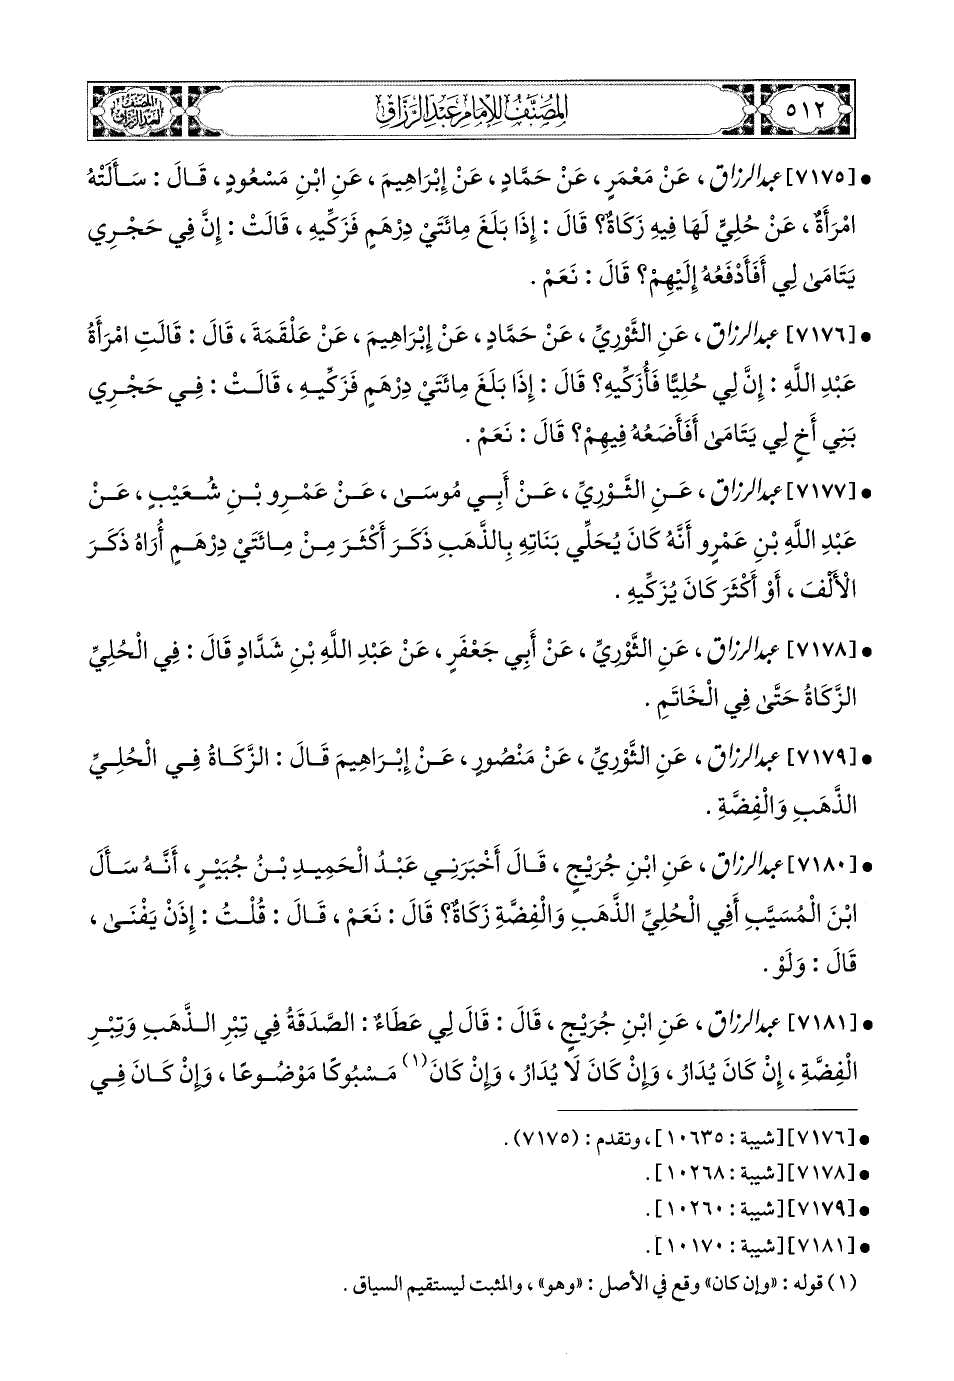 ٥١٢
المصنف للإمام عبد الرزاق
المصنف لعبد الرزاق
• [٧١٧٥] عبد الرزاق، عَنْ مَعْمَرٍ، عَنْ حَمَّادٍ، عَنْ إِبْرَاهِيمَ، عَنِ ابْنِ مَسْعُودٍ، قَالَ: سَأَلَتْهُ
امْرَأَةٌ، عَنْ حُلِيٍّ لَهَا فِيهِ زَكَاةٌ؟ قَالَ: إِذَا بَلَغَ مِائَتَيْ دِرْهَمٍ فَزَكِّيهِ، قَالَتْ: إِنَّ فِي حَجْرِي
يَتَامَىٰ لِي أَفَأَدْفَعُهُ إِلَيْهِمْ؟ قَالَ: نَعَمْ.
• [٧١٧٦] عبد الرزاق، عَنِ الثَّوْرِيِّ، عَنْ حَمَّادٍ، عَنْ إِبْرَاهِيمَ، عَنْ عَلْقَمَةَ، قَالَ: قَالَتِ امْرَأَةُ
عَبْدِ اللَّهِ: إِنَّ لِي حُلِيًّا فَأُزَكِّيهِ؟ قَالَ: إِذَا بَلَغَ مِائَتَيْ دِرْهَمٍ فَزَكِّيهِ، قَالَتْ: فِي حَجْرِي
بَنِي أَخٍ لِي يَتَامَىٰ أَفَأَضَعُهُ فِيهِمْ؟ قَالَ: نَعَمْ.
• [٧١٧٧] عبد الرزاق، عَنِ الثَّوْرِيِّ، عَنْ أَبِي مُوسَىٰ، عَنْ عَمْرِو بْنِ شُعَيْبٍ، عَنْ
عَبْدِ اللَّهِ بْنِ عَمْرٍو أَنَّهُ كَانَ يُحَلِّي بَنَاتِهِ بِالذَّهَبِ ذَكَرَ أَكْثَرَ مِنْ مِائَتَيْ دِرْهَمٍ أُرَاهُ ذَكَرَ
الْأَلْفَ، أَوْ أَكْثَرَ كَانَ يُزَكِّيهِ.
• [٧١٧٨] عبد الرزاق، عَنِ الثَّوْرِيِّ، عَنْ أَبِي جَعْفَرٍ، عَنْ عَبْدِ اللَّهِ بْنِ شَدَّادٍ قَالَ: فِي الْحُلِيِّ
الزَّكَاةُ حَتَّىٰ فِي الْخَاتَمِ.
• [٧١٧٩] عبد الرزاق، عَنِ الثَّوْرِيِّ، عَنْ مَنْصُورٍ، عَنْ إِبْرَاهِيمَ قَالَ: الزَّكَاةُ فِي الْحُلِيِّ
الذَّهَبِ وَالْفِضَّةِ.
• [٧١٨٠] عبد الرزاق، عَنِ ابْنِ جُرَيْجٍ، قَالَ أَخْبَرَنِي عَبْدُ الْحَمِيدِ بْنُ جُبَيْرٍ، أَنَّهُ سَأَلَ
ابْنَ الْمُسَيَّبِ أَفِي الْحُلِيِّ الذَّهَبِ وَالْفِضَّةِ زَكَاةٌ؟ قَالَ: نَعَمْ، قَالَ: قُلْتُ: إِذَنْ يَفْنَىٰ،
قَالَ: وَلَوْ.
• [٧١٨١] عبد الرزاق، عَنِ ابْنِ جُرَيْجٍ، قَالَ: قَالَ لِي عَطَاءٌ: الصَّدَقَةُ فِي تِبْرِ الذَّهَبِ وَتِبْرِ
الْفِضَّةِ، إِنْ كَانَ يُدَارُ، وَإِنْ كَانَ لَا يُدَارُ، وَإِنْ كَانَ(١) مَسْبُوكًا مَوْضُوعًا، وَإِنْ كَانَ فِي
• [٧١٧٦] [شيبة: ١٠٦٣٥]، وتقدم: (٧١٧٥).
• [٧١٧٨] [شيبة: ١٠٢٦٨].
• [٧١٧٩] [شيبة: ١٠٢٦٠].
• [٧١٨١] [شيبة: ١٠١٧٠].
(١) قوله: «وإن كان» وقع في الأصل: «وهو»، والمثبت ليستقيم السياق.